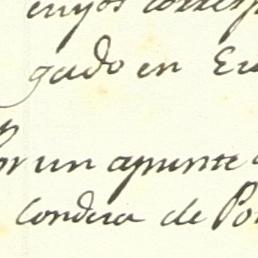 cuyos corresp
gado en Eu
Por un apunte
Condesa de Po